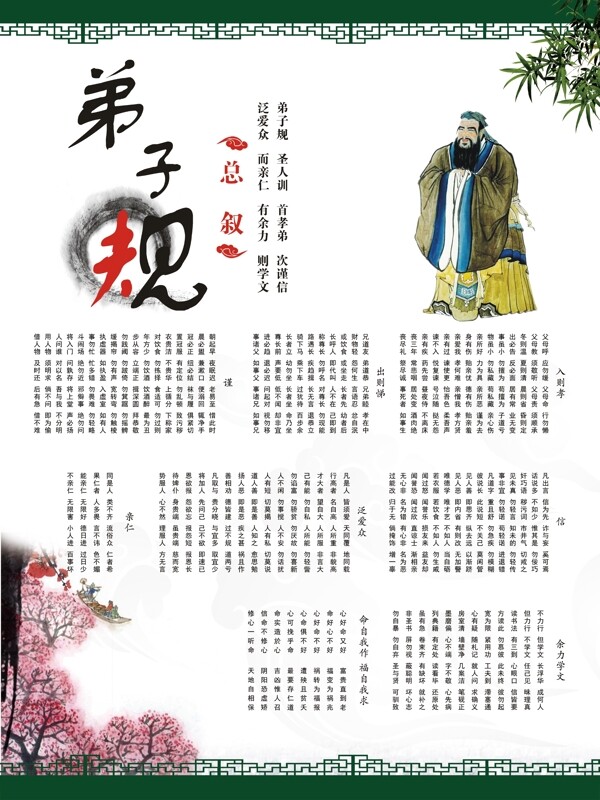 弟子规
总叙
弟子规 圣人训 首孝弟 次谨信
泛爱众 而亲仁 有余力 则学文
入则孝
父母呼 应勿缓 父母命 行勿懒
父母教 须敬听 父母责 须顺承
冬则温 夏则凊 晨则省 昏则定
出必告 反必面 居有常 业无变
事虽小 勿擅为 苟擅为 子道亏
物虽小 勿私藏 苟私藏 亲心伤
亲所好 力为具 亲所恶 谨为去
身有伤 贻亲忧 德有伤 贻亲羞
亲爱我 孝何难 亲憎我 孝方贤
亲有过 谏使更 怡吾色 柔吾声
谏不入 悦复谏 号泣随 挞无怨
亲有疾 药先尝 昼夜侍 不离床
丧三年 常悲咽 居处变 酒肉绝
丧尽礼 祭尽诚 事死者 如事生
出则悌
兄道友 弟道恭 兄弟睦 孝在中
财物轻 怨何生 言语忍 忿自泯
或饮食 或坐走 长者先 幼者后
长呼人 即代叫 人不在 己即到
称尊长 勿呼名 对尊长 勿见能
路遇长 疾趋揖 长无言 退恭立
骑下马 乘下车 过犹待 百步余
长者立 幼勿坐 长者坐 命乃坐
尊长前 声要低 低不闻 却非宜
进必趋 退必迟 问起对 视勿移
事诸父 如事父 事诸兄 如事兄
谨
朝起早 夜眠迟 老易至 惜此时
晨必盥 兼漱口 便溺回 辄净手
冠必正 纽必结 袜与履 俱紧切
置冠服 有定位 勿乱顿 致污秽
衣贵洁 不贵华 上循分 下称家
对饮食 勿拣择 食适可 勿过则
年方少 勿饮酒 饮酒醉 最为丑
步从容 立端正 揖深圆 拜恭敬
勿践阈 勿跛倚 勿箕踞 勿摇髀
缓揭帘 勿有声 宽转弯 勿触棱
执虚器 如执盈 入虚室 如有人
事勿忙 忙多错 勿畏难 勿轻略
斗闹场 绝勿近 邪僻事 绝勿问
将入门 问孰存 将上堂 声必扬
人问谁 对以名 吾与我 不分明
用人物 须明求 倘不问 即为偷
借人物 及时还 后有急 借不难
信
凡出言 信为先 诈与妄 奚可焉
话说多 不如少 惟其是 勿佞巧
奸巧语 秽污词 市井气 切戒之
见未真 勿轻言 知未的 勿轻传
事非宜 勿轻诺 苟轻诺 进退错
凡道字 重且舒 勿急疾 勿模糊
彼说长 此说短 不关己 莫闲管
见人善 即思齐 纵去远 以渐跻
见人恶 即内省 有则改 无加警
唯德学 唯才艺 不如人 当自砺
若衣服 若饮食 不如人 勿生戚
闻过怒 闻誉乐 损友来 益友却
闻誉恐 闻过欣 直谅士 渐相亲
无心非 名为错 有心非 名为恶
过能改 归于无 倘掩饰 增一辜
泛爱众
凡是人 皆须爱 天同覆 地同载
行高者 名自高 人所重 非貌高
才大者 望自大 人所服 非言大
己有能 勿自私 人所能 勿轻訾
勿谄富 勿骄贫 勿厌故 勿喜新
人不闲 勿事搅 人不安 勿话扰
人有短 切莫揭 人有私 切莫说
道人善 即是善 人知之 愈思勉
扬人恶 即是恶 疾之甚 祸且作
善相劝 德皆建 过不规 道两亏
凡取与 贵分晓 与宜多 取宜少
将加人 先问己 己不欲 即速已
恩欲报 怨欲忘 报怨短 报恩长
待婢仆 身贵端 虽贵端 慈而宽
势服人 心不然 理服人 方无言
亲仁
同是人 类不齐 流俗众 仁者希
果仁者 人多畏 言不讳 色不媚
能亲仁 无限好 德日进 过日少
不亲仁 无限害 小人进 百事坏
余力学文
不力行 但学文 长浮华 成何人
但力行 不学文 任己见 昧理真
读书法 有三到 心眼口 信皆要
方读此 勿慕彼 此未终 彼勿起
宽为限 紧用功 工夫到 滞塞通
心有疑 随札记 就人问 求确义
房室清 墙壁净 几案洁 笔砚正
墨磨偏 心不端 字不敬 心先病
列典籍 有定处 读看毕 还原处
虽有急 卷束齐 有缺坏 就补之
非圣书 屏勿视 蔽聪明 坏心志
勿自暴 勿自弃 圣与贤 可驯致
命自我作 福自我求
心好命又好 富贵直到老
命好心不好 福变为祸兆
心好命不好 祸转为福报
心命俱不好 遭殃且贫夭
心可挽乎命 最要存仁道
命实造於心 吉凶惟人召
信命不修心 阴阳恐虚矫
修心一听命 天地自相保